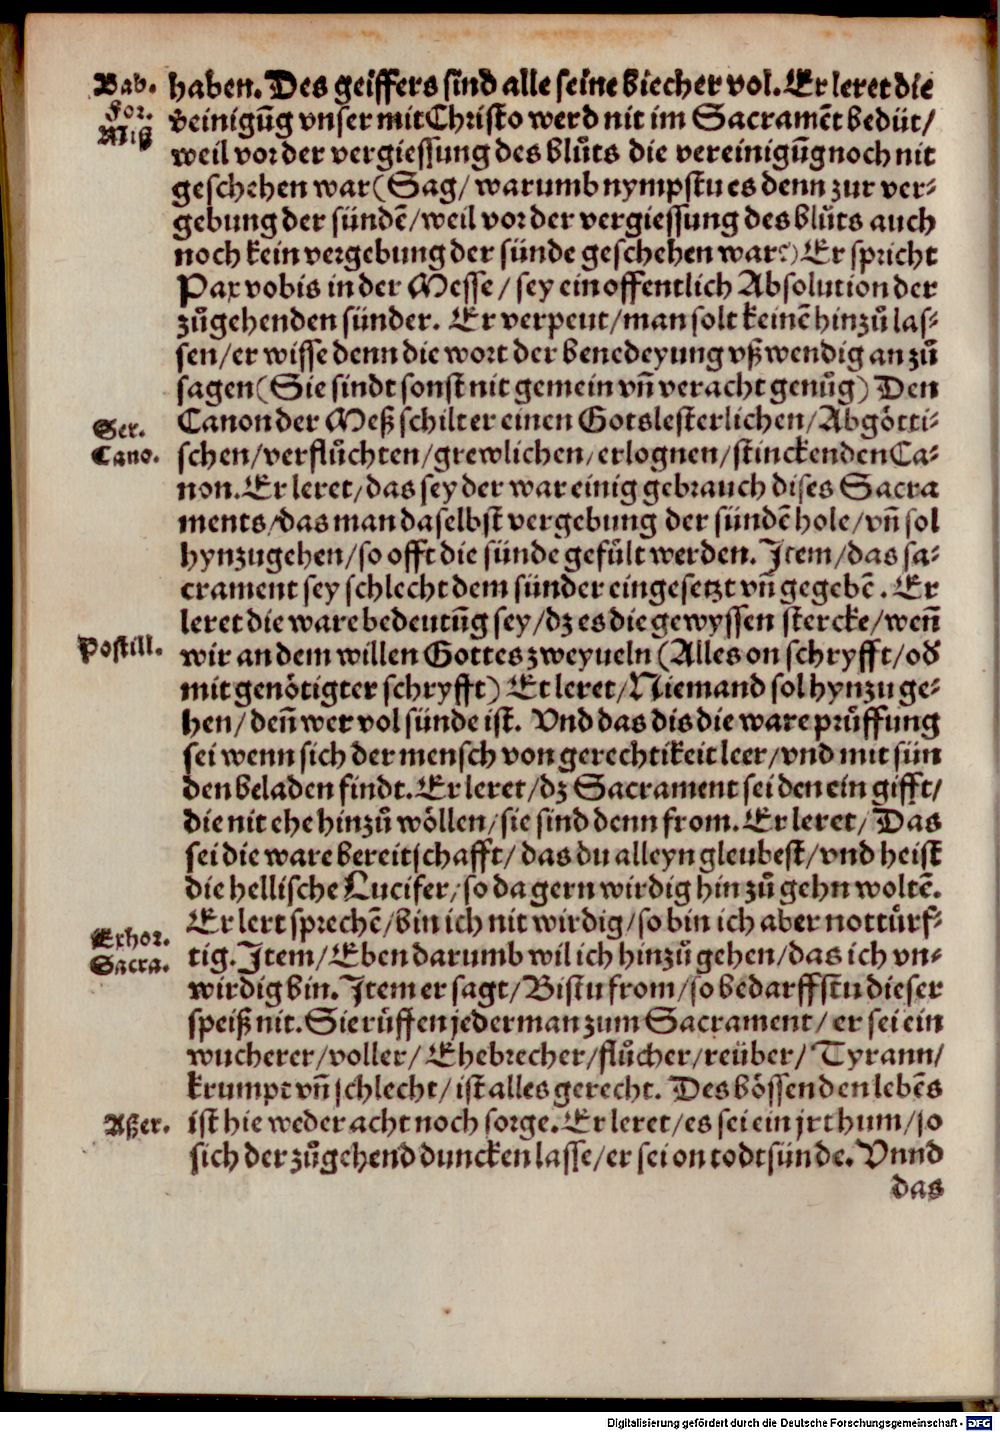 Bab.
For.
Miß
haben. Des geiffers sind alle seine biecher vol. Er leret die
veinigūg vnser mit Christo werd nit im Sacramēt bedüt/
weil vor der vergiessung des blůts die vereinigūg noch nit
geschehen war (Sag/ warumb nympstu es denn zur ver-
gebung der sündē/ weil vor der vergiessung des blůts auch
noch kein vergebung der sünde geschehen war?) Er spricht
Pax vobis in der Messe/ sey ein offentlich Absolution der
zůgehenden sünder. Er verpeut/ man solt keinē hinzů las-
sen/ er wisse denn die wort der benedeyung vß wendig an zů
sagen (Sie sindt sonst nit gemein vñ veracht genůg) Den
Ser.
Cano.
Canon der Meß schilt er einen Gotslesterlichen/ Abgötti-
schen/ verflůchten/ grewlichen/ erlognen/ stinckenden Ca-
non. Er leret/ das sey der war einig gebrauch dises Sacra
ments/ das man daselbst vergebung der sündē hole/ vñ sol
hynzugehen/ so offt die sünde gefůlt werden. Item/ das sa-
crament sey schlecht dem sünder eingesetzt vñ gegebē. Er
leret die ware bedeutūg sey/ dz es die gewyssen stercke/ weñ
Postill.
wir an dem willen Gottes zweyueln (Alles on schryfft/ od
mit genötigter schryfft) Et leret/ Niemand sol hynzu ge-
hen/ deñ wer vol sünde ist. Vnd das dis die ware průffung
sei wenn sich der mensch von gerechtikeit leer/ vnd mit sün
den beladen findt. Er leret/ dz Sacrament sei den ein gifft/
die nit ehe hinzů wöllen/ sie sind denn from. Er leret/ Das
sei die ware bereitschafft/ das du alleyn gleubest/ vnd heist
die hellische Lucifer/ so da gern wirdig hin zů gehn woltē.
Exhor.
Sacra.
Er lert sprechē/ bin ich nit wirdig/ so bin ich aber nottůrf-
tig. Item/ Eben darumb wil ich hinzů gehen/ das ich vn-
wirdig bin. Item er sagt/ Bistu from/ so bedarffstu dieser
speiß nit. Sie růffen jederman zum Sacrament/ er sei ein
wucherer/ voller/ Ehebrecher/ flůcher/ reüber/ Tyrann/
krumpt vñ schlecht/ ist alles gerecht. Des bössenden lebēs
Aßer.
ist hie weder acht noch sorge. Er leret/ es sei ein jrthum/ so
sich der zůgehend duncken lasse/ er sei on todtsünde. Vnnd
das
Digitalisierung gefördert durch die Deutsche Forschungsgemeinschaft - DFG